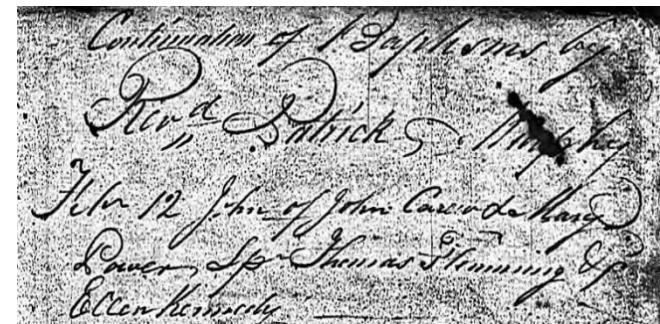 Continuation of Baptisms by
Revd Patrick Murphy
Febr 12 John of John Carew & Mary
Power, Spr Thomas Flemming &
Ellen Kennedy